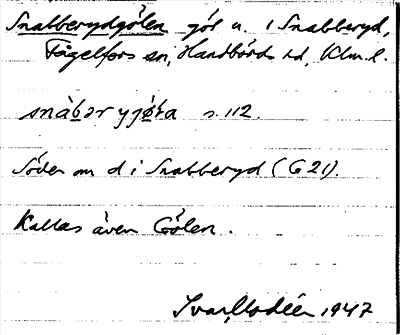 Snabberydgölen göl u. i Snabberyd,
Fågelfors sn, Handbörds hd, Klm. l.
snàbəryjø̀ɫa s. 112.
Söder om d i Snabberyd (G 21).
Kallas även Gölen.
Ivar Modéer 1947